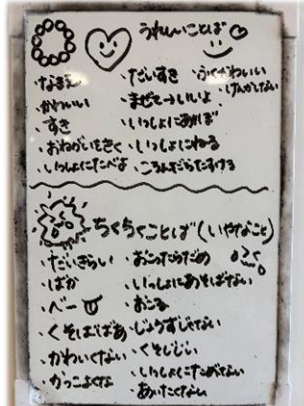 うれしいことば
・かわいい
・すき
・おねがいをきく
・いっしょにたべよ
・だいすき
・まぜて→いいよ
・いっしょにあそぼ
・いっしょにねる
・ころんだらたすける
・ふくかわいい
・けんかしない
ちくちくことば(いやなこと)
・だいきらい
・ばか
・べー
・くそばばあ
・かわいくない
・かっこよくな
・おこったらだめ
・いっしょにあそばない
・おこる
・じょうずじゃない
・くそじじい
・いっしょにたべない
・あいたくない